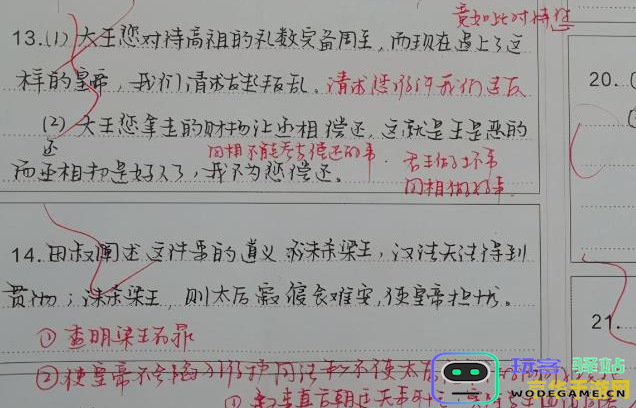 竟如此对待您
13.(1) 大王您对待高祖的礼数完备周全,而现在遇上了这
样的皇帝,我们请求发起叛乱。请求您允许我们造反
(2) 大王您拿走的财物让丞相偿还,这就是王是恶的
而丞相却是好人了,我不为您偿还。
国相不能参与偿还的事. 君王做了坏事
国相做好事
20.
14. 田叔阐述这件事的道义 求未杀梁王,汉法无法得到
贯彻;诛杀梁王,则太后寝食难安,使皇帝担忧。
① 查明梁王有罪
②使皇帝不会陷
21.
玩客 驿站
WODEGAME.CN